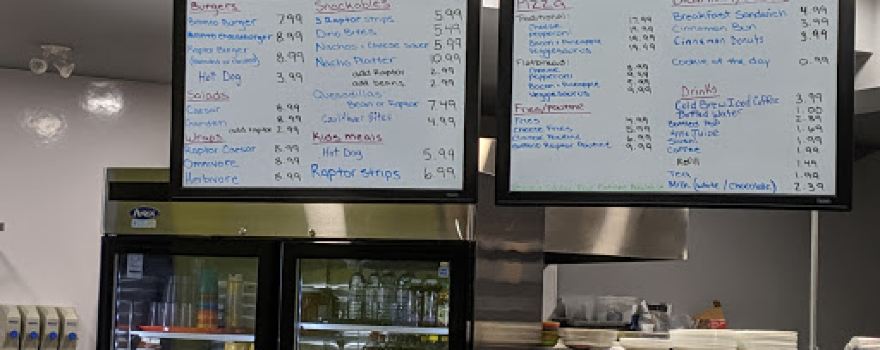 Burgers
Bronto Burger 7.99
8.99
Raptor Burger
8.99
Hot Dog 3.99
Salads
Caesar 8.99
Garden 8.99
add raptor 2.99
Wraps
Raptor Caesar 8.99
Omnivore 8.99
Herbivore 8.99
Snackables
3 Raptor strips 5.99
Dino Bites 5.49
Nachos + cheese sauce 5.99
Nacho Platter 10.99
add Raptor 2.99
add beans 2.99
Quesadillas
Bean or Raptor 7.49
Cauliflower Bites 4.99
Kids meals
Hot Dog 5.99
Raptor strips 6.99
Pizza
Traditional:
Cheese
Pepperoni
Bacon + Pineapple
Veggiesaurus
Flatbread:
Cheese 8.99
Pepperoni
Bacon + Pineapple
Veggiesaurus 9.99
Fries/poutine
Fries 4.99
Cheese Fries 5.99
Classic Poutine 6.99
Buffalo Raptor Poutine 9.99
Breakfast Sandwich 4.99
Cinnamon Bun 3.99
Cinnamon Donuts 3.99
Cookie of the day 0.99
Drinks
Cold Brew Iced Coffee 3.99
Bottled Water 1.00
Bottled Pop 2.39
Juice 1.69
1.99
Coffee 1.99
Refill 1.49
Tea 1.99
Milk (white / chocolate) 2.39